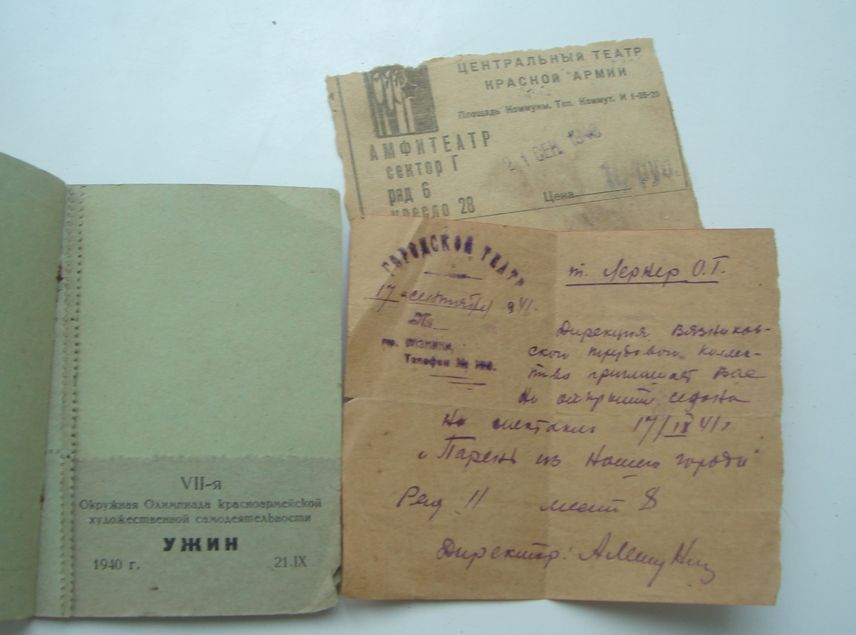 ЦЕНТРАЛЬНЫЙ ТЕАТР
КРАСНОЙ АРМИИ
Площадь Коммуны. Тел. Коммут. И 1-05-20
АМФИТЕАТР
сектор Г
ряд 6
кресло 28
21 СЕН. 1940
Цена
10 руб.
ГОРОДСКОЙ ТЕАТР
17 сентября 1941.
№
гор. ВЯЗНИКИ,
Телефон №
т. Лернер О.Г.
Дирекция Вязников-
ского трудового коллек-
тива приглашает Вас
на открытие сезона
На спектакль 17/IX 41 г
„Парень из нашего города"
Ряд 11 место 8
Директор:
VII-я
Окружная Олимпиада красноармейской
художественной самодеятельности
УЖИН
1940 г. 21.IX